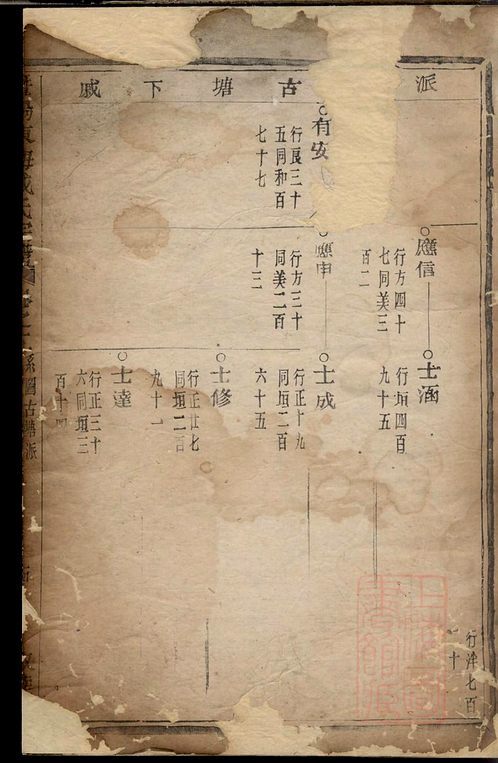 派 古塘下戚
應信
行方四十
七同美三
百二
士涵
行垣四百
九十五
行洋七百
一十
有安
行良三十
五同和百
七十七
應申
行方三十
同美二百
十三
士成
行正十九
同垣二百
六十五
士修
行正廿七
同垣二百
九十一
士達
行正三十
六同垣三
百十四
系圖古塘派